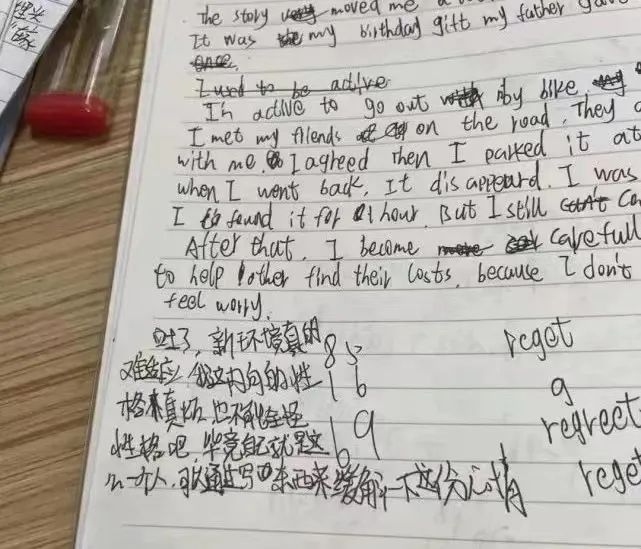 The story moved me a
It was my birthday gift my father gave
once.
I used to be active
I'm active to go out by bike.
I met my friends on the road. They
with me. I agreed then I parked it at
when I went back, It disappeard. I was
I found it for 1 hour. But I still can't
After that, I become carefull
to help other find their losts, because I don't
feel worry.
吐了，新环境真的
难适应，我这内向的小性
格来真坏，也不能全怪
性格吧，毕竟自己就是这
么一个人，可以通过写东西来缓解一下这份心情
85
16
69
reget
g
regreet
reget